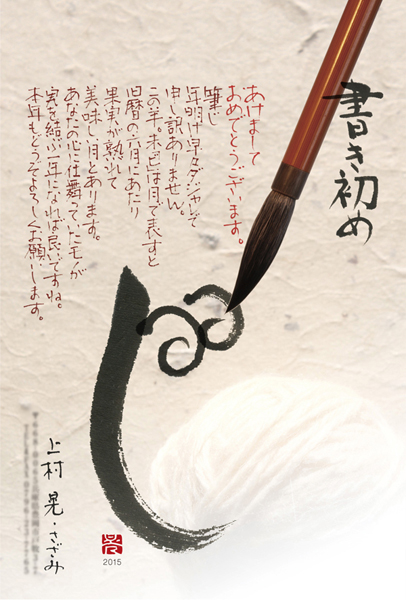 書き初め
あけまして
おめでとうございます。
筆じ
年明け早々ダジャレで
申し訳ありません。
この羊。は月で表すと
旧暦の六月にあたり
果実が熟れて
美味しい月とあります。
あなたの心に仕舞っていたモノが
実を結ぶ一年になれば良いですね。
本年もどうぞよろしくお願いします。
上村 晃・さざみ
2015